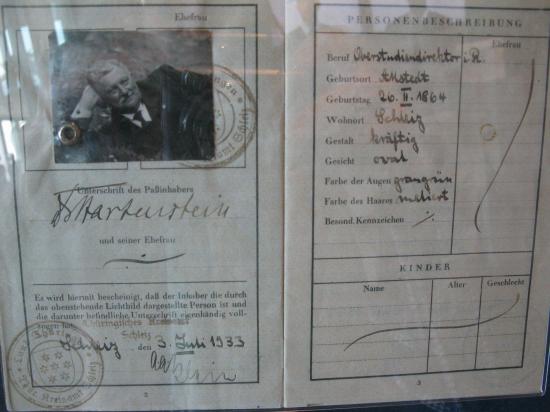 Ehefrau
Unterschrift des Paßinhabers
Hartenstein
und seiner Ehefrau
Es wird hiermit bescheinigt, daß der Inhaber die durch
das obenstehende Lichtbild dargestellte Person ist und
die darunter befindliche Unterschrift eigenhändig voll-
zogen hat.
Thüringisches Kreisamt
Schleiz
Schleiz, den 3. Juli 1933
2
PERSONENBESCHREIBUNG
Ehefrau
Beruf Oberstudiendirektor i. R.
Geburtsort
Geburtstag 26. II. 1864
Wohnort Schleiz
Gestalt kräftig
Gesicht oval
Farbe der Augen graugrün
Farbe des Haares meliert
Besond. Kennzeichen
KINDER
Name Alter Geschlecht
3